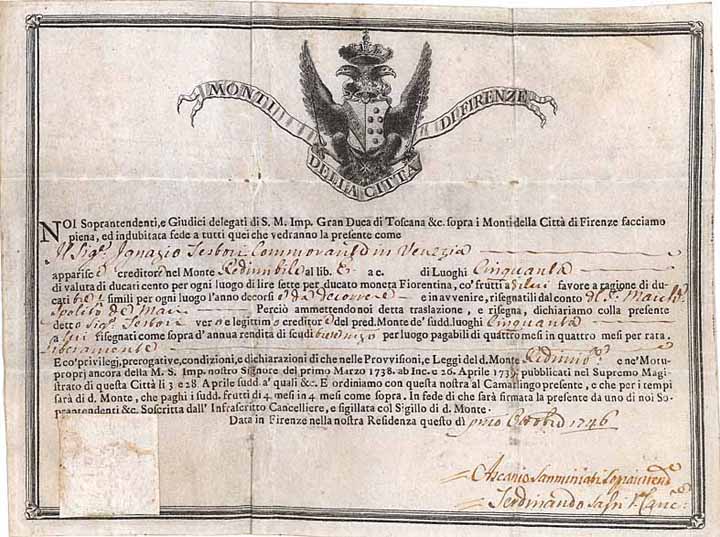 MONTI
DI FIRENZE
DELLA CITTÀ
NOI Soprantendenti, e Giudici delegati di S. M. Imp. Gran Duca di Toscana &c. sopra i Monti della Città di Firenze facciamo
piena, ed indubitata fede a tutti quei che vedranno la presente come
Il Sig.e Ignazio Testori Commorante in Venezia
apparisce creditore nel Monte Redimibile al lib. a c. di Luoghi Cinquanta
di valuta di ducati cento per ogni luogo di lire sette per ducato moneta Fiorentina, co' frutti a favore a ragione di du-
cati tre simili per ogni luogo l'anno decorsi e da decorrere e in avvenire, risegnatili dal conto
Perciò ammettendo noi detta traslazione, e risegna, dichiariamo colla presente
detto Sig.e Testori vero e legittimo creditore del pred. Monte de' sudd. luoghi Cinquanta
a lui risegnati come sopra d'annua rendita di scudi per luogo pagabili di quattro mesi in quattro mesi per rata.
liberamente
E co' privilegi, prerogative, condizioni, e dichiarazioni di che nelle Provvisioni, e Leggi del d. Monte e ne' Motu-
propri ancora della M. S. Imp. nostro Signore del primo Marzo 1738. ab Inc. e 26. Aprile 1739. pubblicati nel Supremo Magi-
strato di questa Città li 3 e 28. Aprile sudd. a' quali &c. E ordiniamo con questa nostra al Camarlingo presente, e che per i tempi
sarà di d. Monte, che paghi i sudd. frutti di 4. mesi in 4 mesi come sopra. In fede di che sarà firmata la presente da uno di noi So-
prantendenti &c. Soscritta dall' Infrascritto Cancelliere, e sigillata col Sigillo di d. Monte.
Data in Firenze nella nostra Residenza questo dì primo Ottobre 1746
Ascanio Sanminiati Soprintend.e
Ferdinando Canc.e